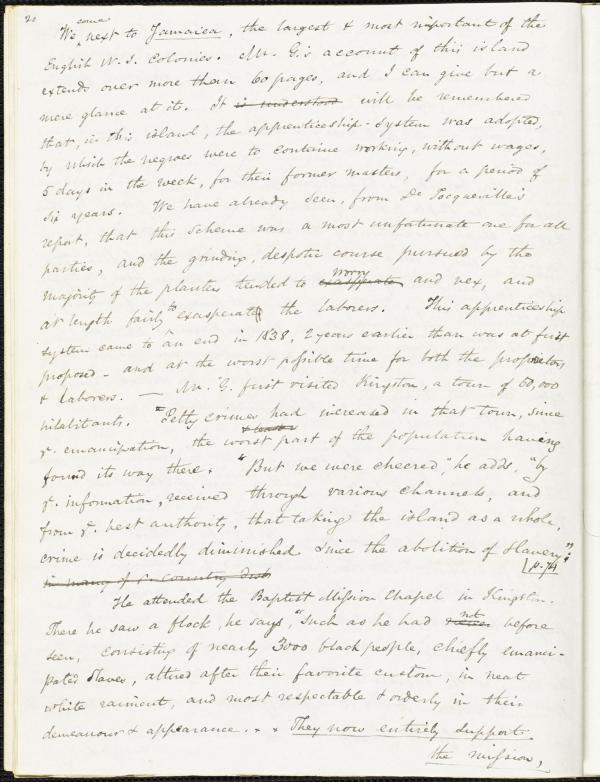 20
We come next to Jamaica, the largest & most important of the
English W. I. Colonies. Mr. G.'s account of this island
extends over more than 60 pages, and I can give but a
mere glance at it. It is understood will be remembered
that, in this island, the apprenticeship-system was adopted,
by which the negroes were to continue working, without wages,
5 days in the week, for their former masters, for a period of
six years. We have already seen, from De Tocqueville's
report, that this scheme was a most unfortunate one for all
parties, and the grinding, despotic course pursued by the
majority of the planters tended to exasperate worry and vex, and
at length fairly to exasperate the laborers. This apprenticeship
system came to an end in 1838, 2 years earlier than was at first
proposed - and at the worst possible time for both the proprietors
& laborers. — Mr. G. first visited Kingston, a town of 60,000
inhabitants. "Petty crimes had increased in that town, since
ye. emancipation, the worst part of the population having
found its way there. "But we were cheered", he adds, "by
ye. information, received through various channels, and
from ye. best authority, that taking the island as a whole,
crime is decidedly diminished since the abolition of Slavery":
in many of ye. country dist
p. 94
He attended the Baptist Mission Chapel in Kingston.
There he saw a flock, he says, "such as he had not before
seen, consisting of nearly 3000 black people, chiefly emanci-
pated Slaves, attired after their favorite custom, in neat
white raiment, and most respectable & orderly in their
demeanour & appearance. * * They now entirely support
the mission,